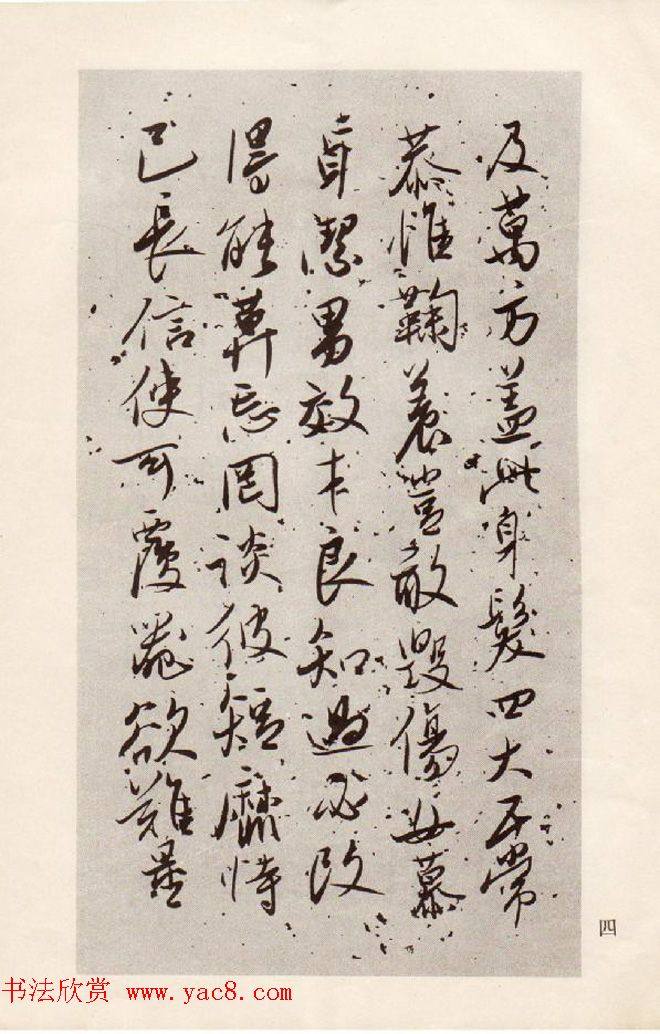 及萬方蓋此身髮四大五常
恭惟鞠養豈敢毀傷女慕
貞潔男效才良知過必改
得能莫忘罔談彼短靡恃
己長信使可覆器欲難量
四
书法欣赏 www.yac8.com